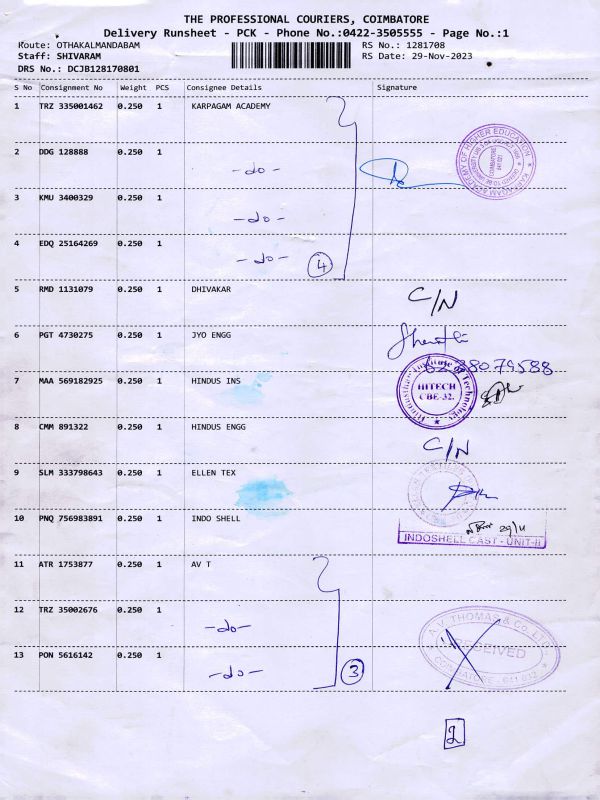 THE PROFESSIONAL COURIERS, COIMBATORE
Delivery Runsheet - PCK - Phone No.:0422-3505555 - Page No.:1
Route: OTHAKALMANDABAM RS No.: 1281708
Staff: SHIVARAM RS Date: 29-Nov-2023
DRS No.: DCJB128170801
S No Consignment No Weight PCS Consignee Details Signature
1 TRZ 335001462 0.250 1 KARPAGAM ACADEMY
KARPAGAM ACADEMY OF HIGHER EDUCATION
COIMBATORE 641 021
2 DDG 128888 0.250 1 -do-
3 KMU 3400329 0.250 1 -do-
4 EDQ 25164269 0.250 1 -do- 4
5 RMD 1131079 0.250 1 DHIVAKAR C/N
6 PGT 4730275 0.250 1 JYO ENGG
7 MAA 569182925 0.250 1 HINDUS INS
Hindusthan Institute of Technology
HITECH
CBE-32.
8 CMM 891322 0.250 1 HINDUS ENGG C/N
9 SLM 333798643 0.250 1 ELLEN TEX
10 PNQ 756983891 0.250 1 INDO SHELL 29/11
INDOSHELL CAST - UNIT-II
11 ATR 1753877 0.250 1 AV T
12 TRZ 35002676 0.250 1 -do-
A.V. THOMAS & Co. LTD.
RECEIVED
COIMBATORE - 641 032
13 PON 5616142 0.250 1 -do- 3
2